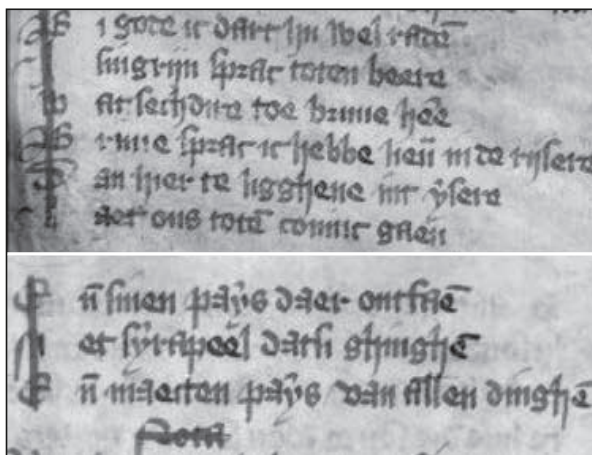 B i gode ic dart hu wel radē
I singrijn sprac toten beere
W at sechdire toe brune heē
B rune sprac ic hebbe lieū in de rijsere
D an hier te ligghene int ẏsere
L aet ons totē coninc gaen
E n̄ sinen paẏs daer ontfaē
M et fẏrapeel datsi ghinghē
E n̄ maecten paẏs van allen dinghē